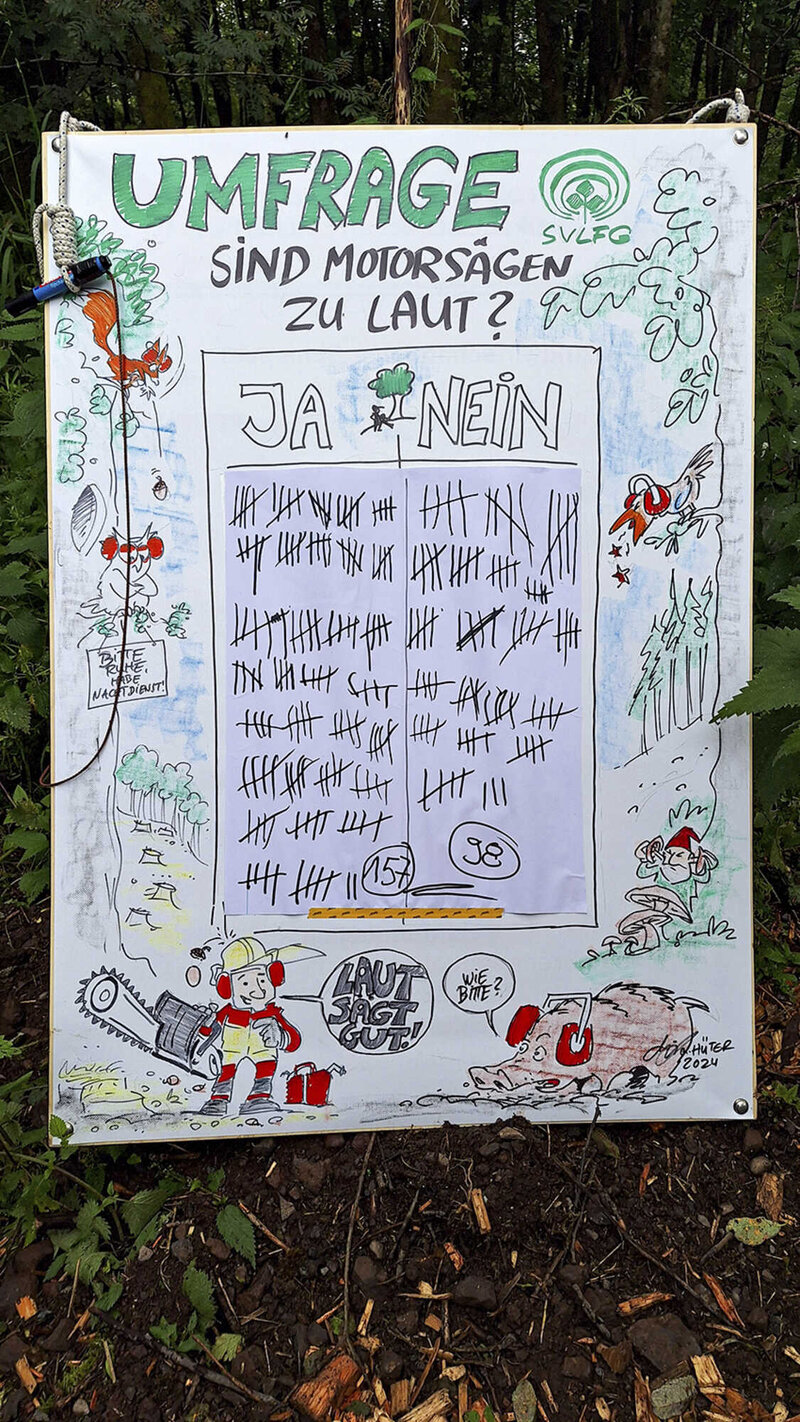 UMFRAGE
SVLFG
SIND MOTORSÄGEN
ZU LAUT?
JA NEIN
BITTE
RUHE,
HABE
NACHTDIENST!
157 98
LAUT
SAGT
GUT!
WIE
BITTE?
HÜTER
2024